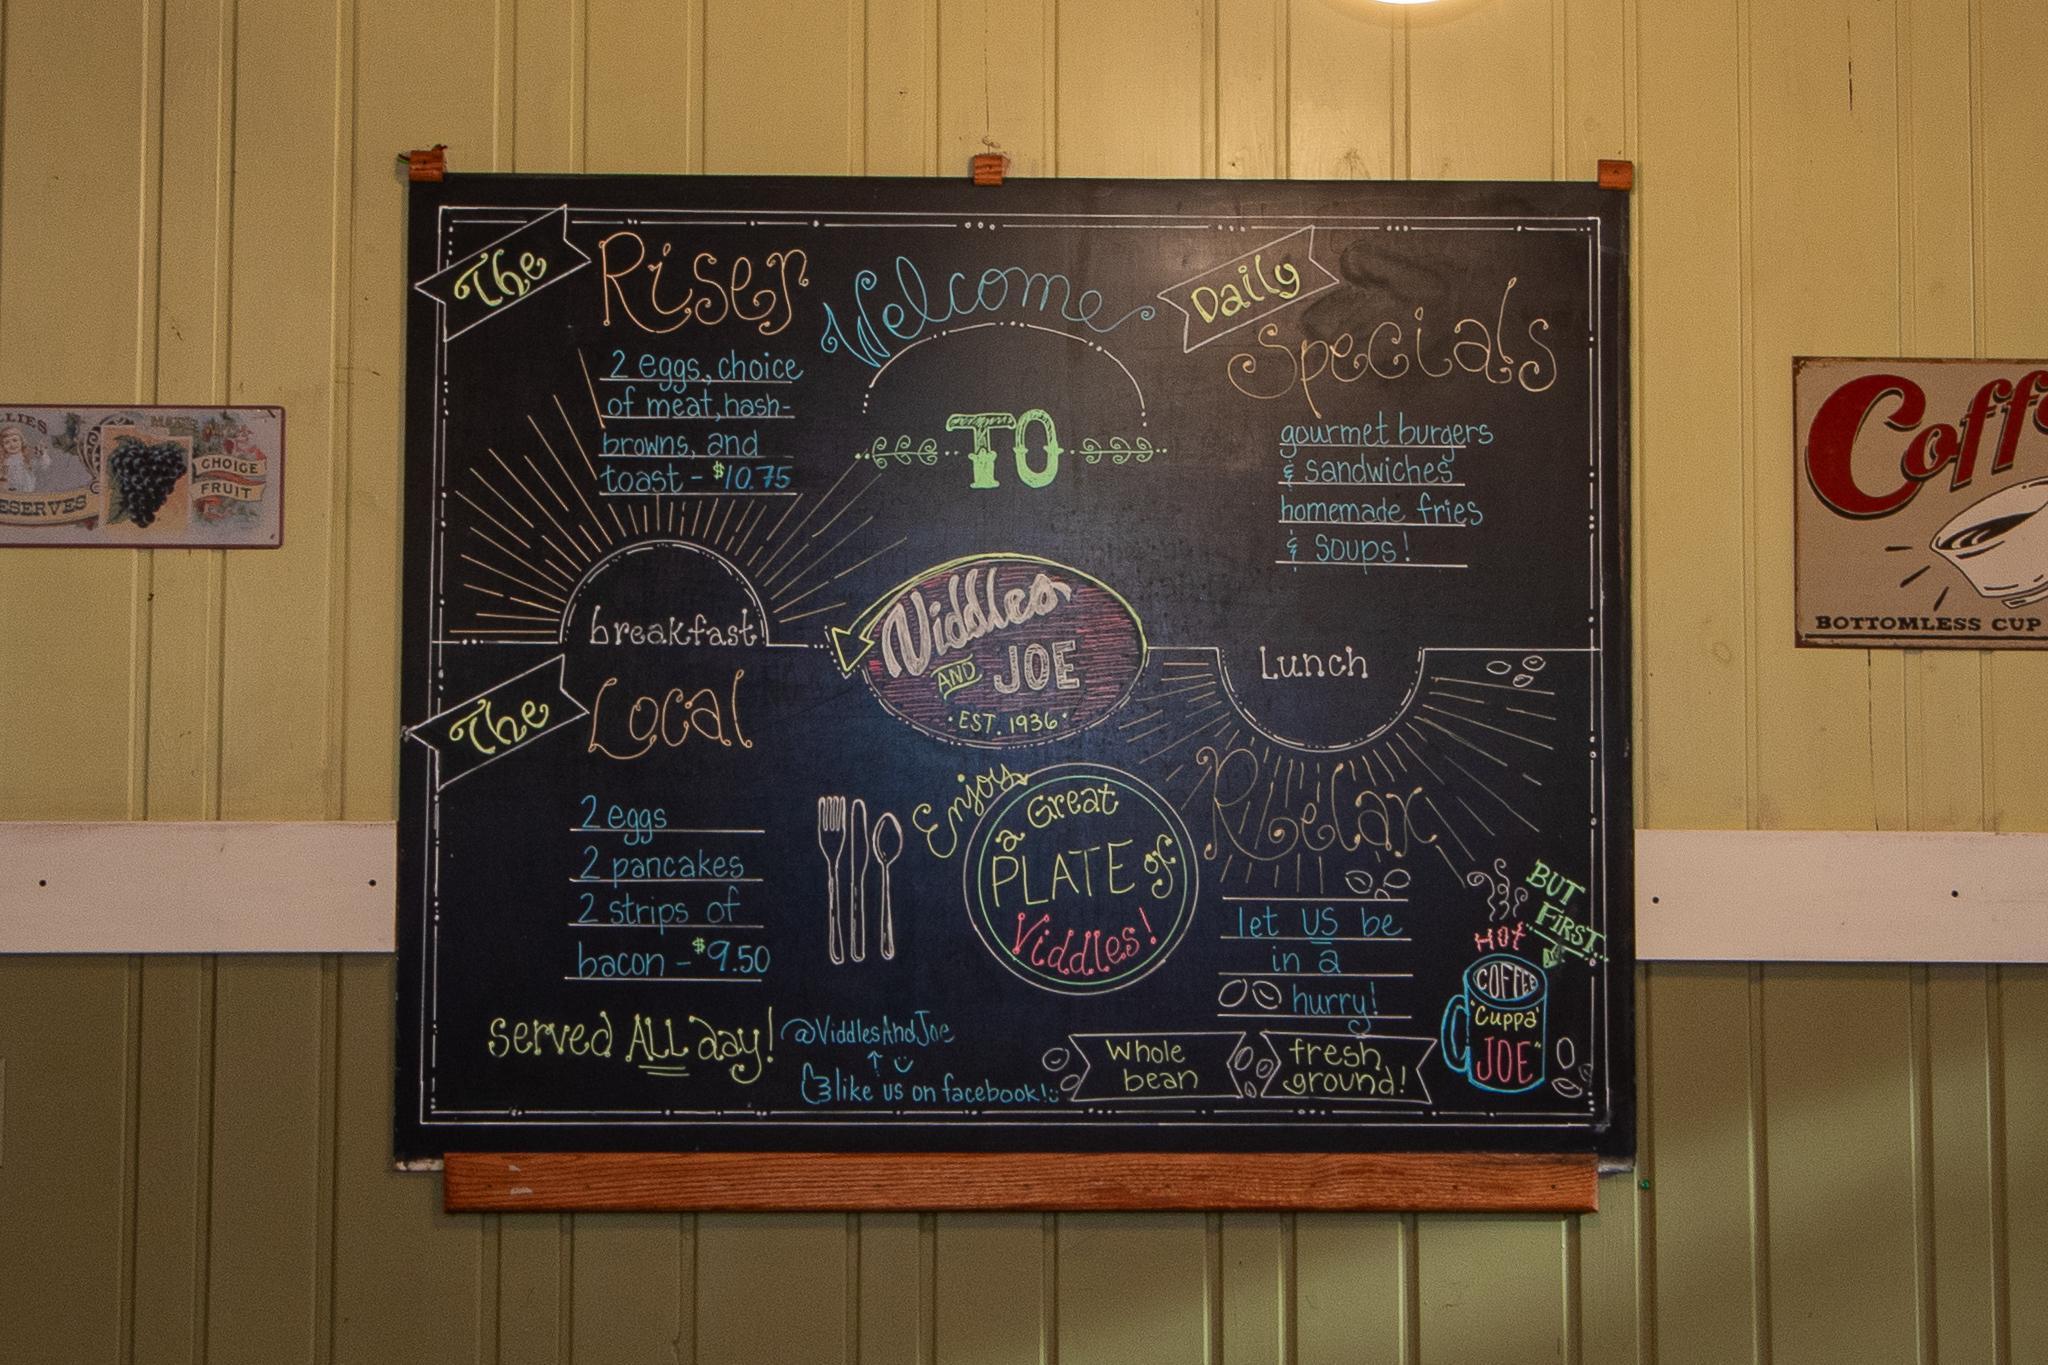 The Riser
2 eggs, choice
of meat, hash-
browns, and
toast - $10.75
breakfast
The Local
2 eggs
2 pancakes
2 strips of
bacon - $9.50
served ALL day!
Welcome
TO
Viddles
AND JOE
· EST. 1936 ·
Enjoy
a Great
PLATE of
Viddles!
@ViddlesAndJoe
like us on facebook!
Daily
Specials
gourmet burgers
& sandwiches
homemade fries
& soups!
Lunch
Relax
let US be
in a
hurry!
Whole
bean
fresh
ground!
BUT
FIRST
HOT
COFFEE
"Cuppa'
JOE"
LLIES
ESERVES
MADE
CHOICE
FRUIT
Coffe
BOTTOMLESS CUP